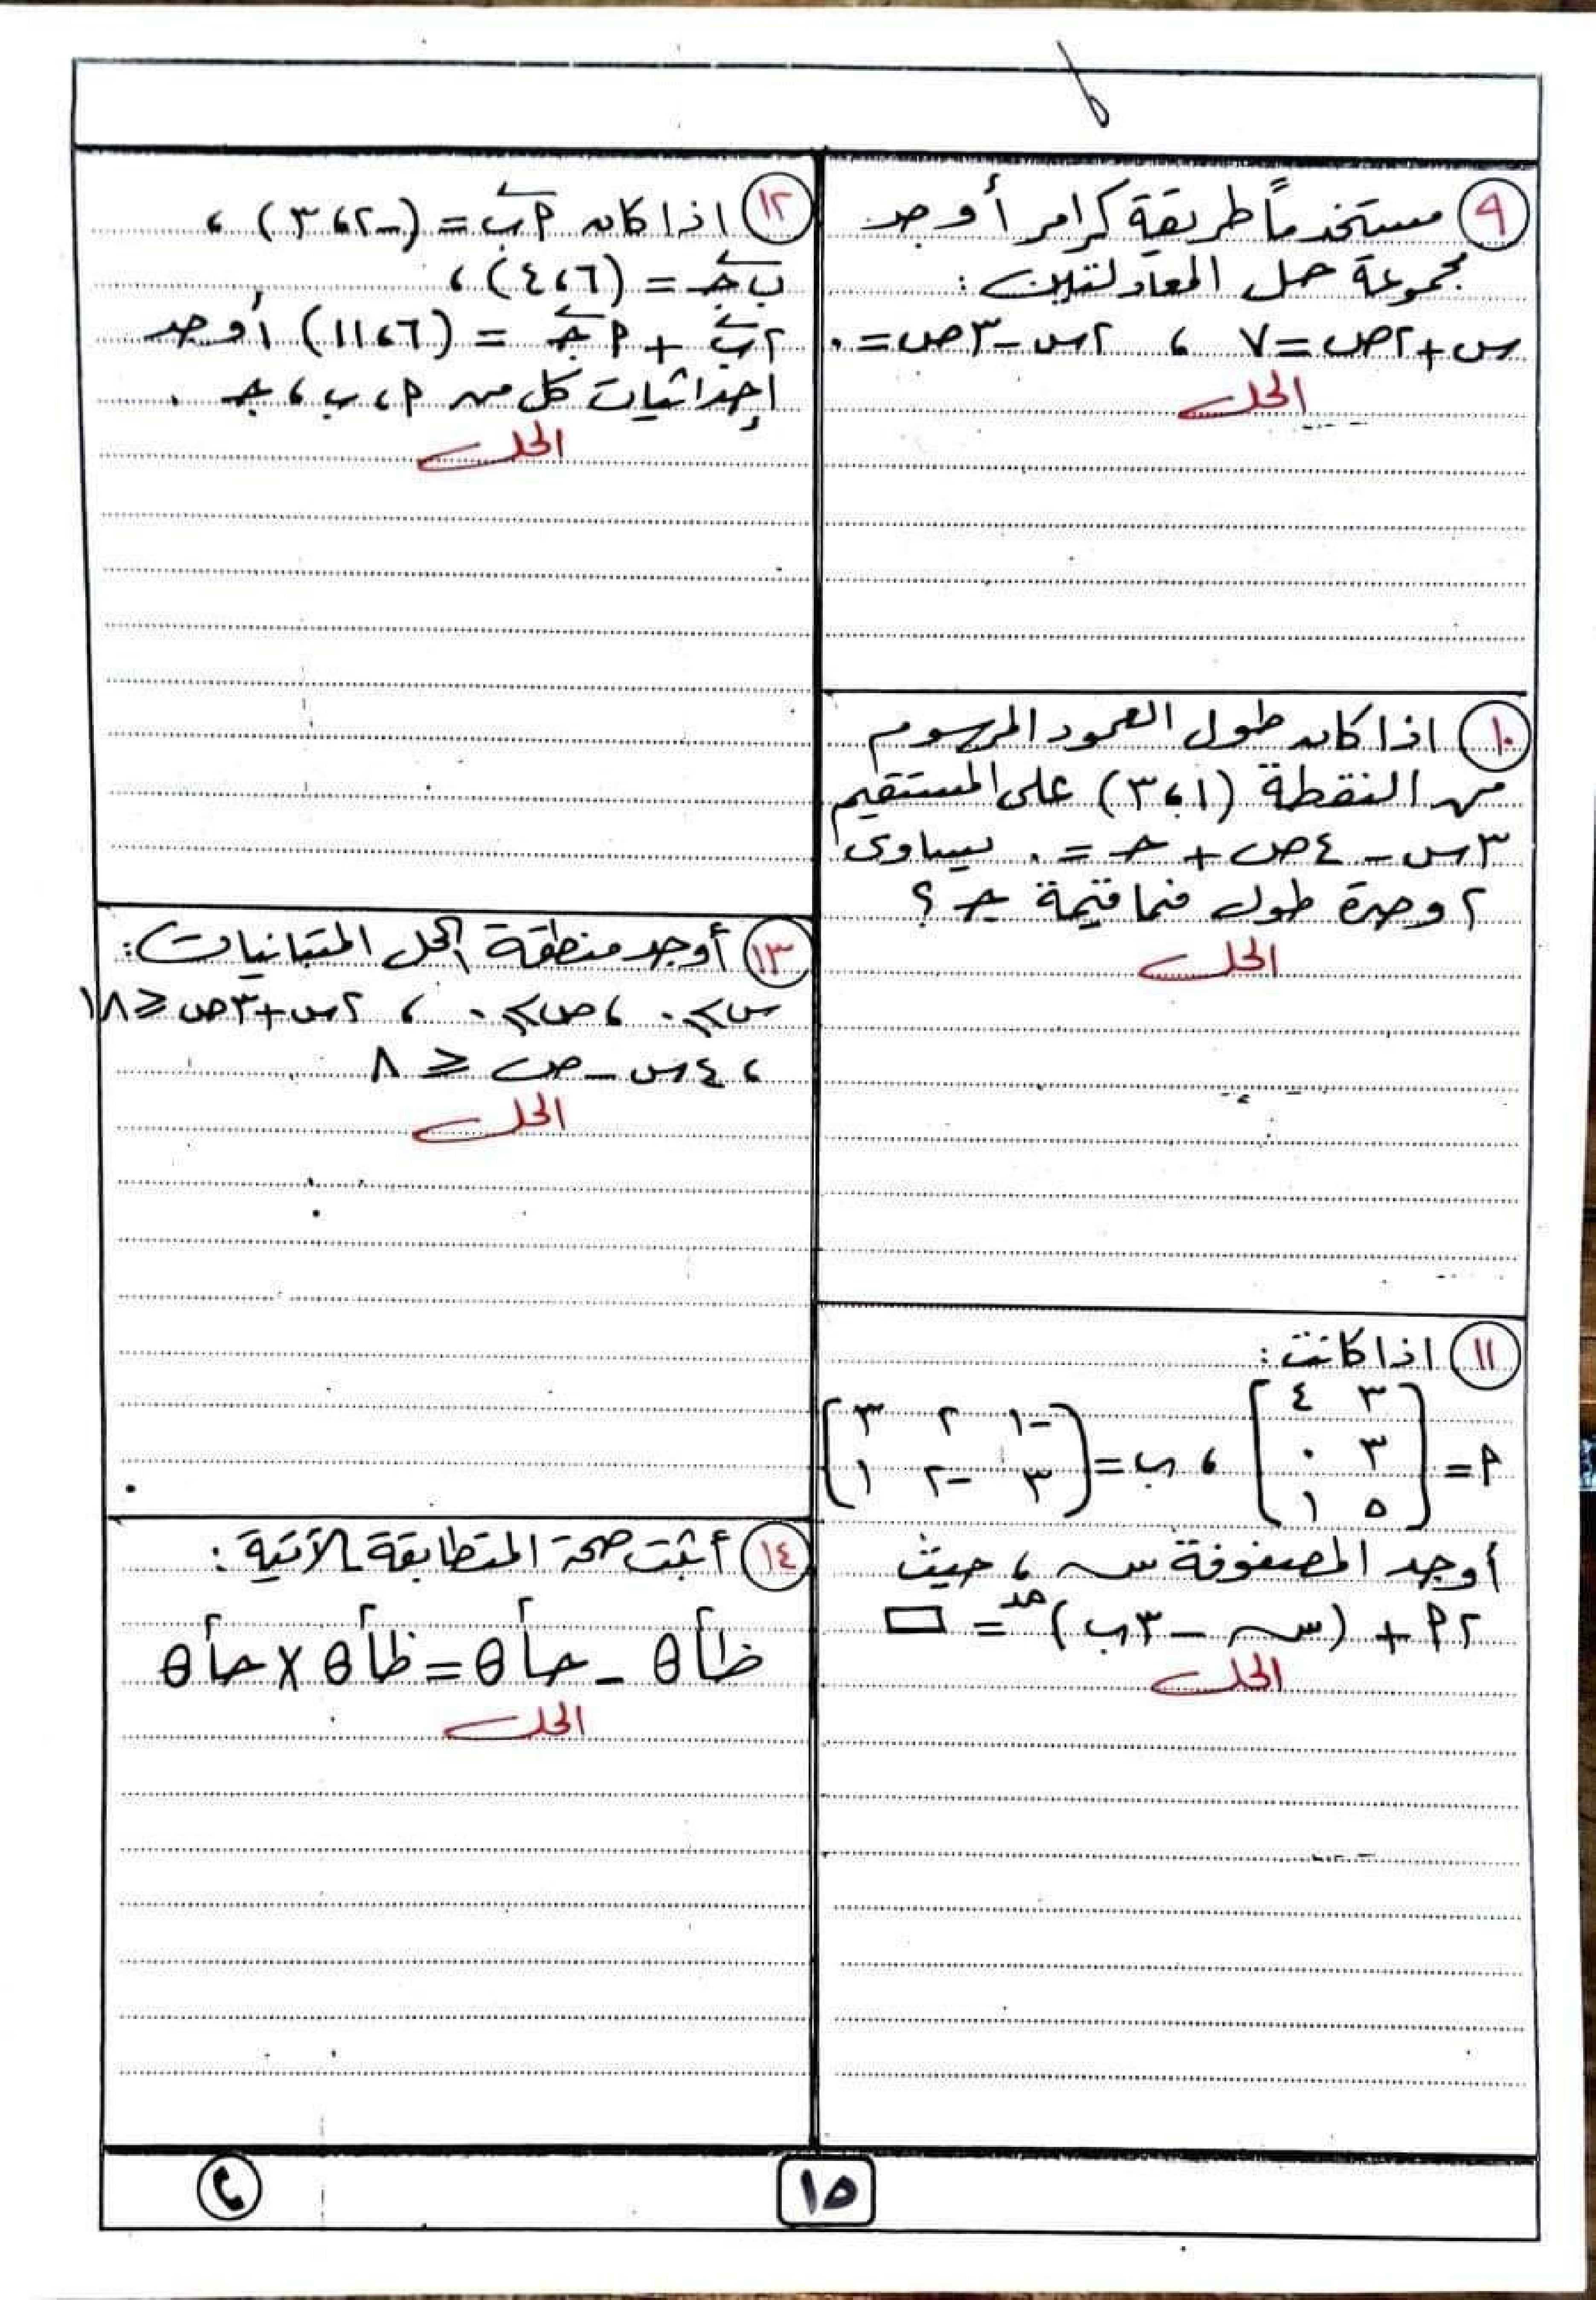 ٩ مستخدماً طريقة كرامر أوجد
مجموعة حل المعادلتين :
س + ٢ص = ٧ ، ٢س - ٣ص = ٠
الحل
١٠ اذا كان طول العمود المرسوم
من النقطة (٣،١) على المستقيم
٣س - ٤ص + جـ = ٠ يساوى
٢ وحدة طول فما قيمة جـ ؟
الحل
١١ اذا كانت :
٣ ٤
-١ ٢ ٣
أ = ٣ ٠ ، ب =
٣ -٢ ١
٥ ١
أوجد المصفوفة س ، حيث
٢أ + (س - ٣ب)مد = □
الحل
١٢ اذا كان أب = (-٣،٢) ،
ب جـ = (٤،٦) ،
٢ب + أجـ = (١١،٦) أوجد
إحداثيات كل من أ ، ب ، جـ .
الحل
١٣ أوجد منطقة الحل المتباينات :
س ≥ ٠ ، ص ≥ ٠ ، ٢س + ٣ص ≤ ١٨
، ٤س - ص ≤ ٨
الحل
١٤ أثبت صحة المتطابقة الآتية :
ظا٢θ - حا٢θ = ظا٢θ × حا٢θ
الحل
١٥